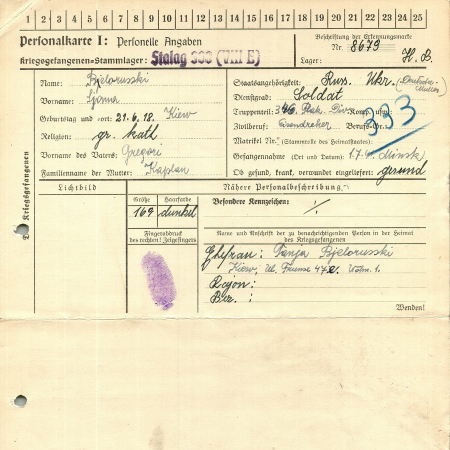 1 2 3 4 5 6 7 8 9 10 11 12 13 14 15 16 17 18 19 20 21 22 23 24 25
Personalkarte I: Personelle Angaben
Beschriftung der Erkennungsmarke
Nr. 8679
Kriegsgefangenen-Stammlager: Stalag
(VIII E)
Lager: H. B.
Des Kriegsgefangenen
Name: Bjelorusski
Vorname: Sjoma
Geburtstag und -ort: 21.6.18. Kiew
Religion: gr. kath
Vorname des Vaters: Gregori
Familienname der Mutter: Kaplan
Staatsangehörigkeit: Rus. Ukr.
Dienstgrad: Soldat
Truppenteil: 346 Komp. usw.:
Zivilberuf: Berufs-Gr.:
Matrikel Nr. (Stammrolle des Heimatstaates):
Gefangennahme (Ort und Datum): Minsk
Ob gesund, krank, verwundet eingeliefert: gesund
333
Lichtbild
Größe Haarfarbe
169 dunkel
Fingerabdruck
des rechten! Zeigefingers
Nähere Personalbeschreibung
Besondere Kennzeichen: ./.
Name und Anschrift der zu benachrichtigenden Person in der Heimat
des Kriegsgefangenen
Ehefrau: Tanja Bjelorusski
Kiew, Ul. Frunse 47
Rajon:
Bez.:
Wenden!